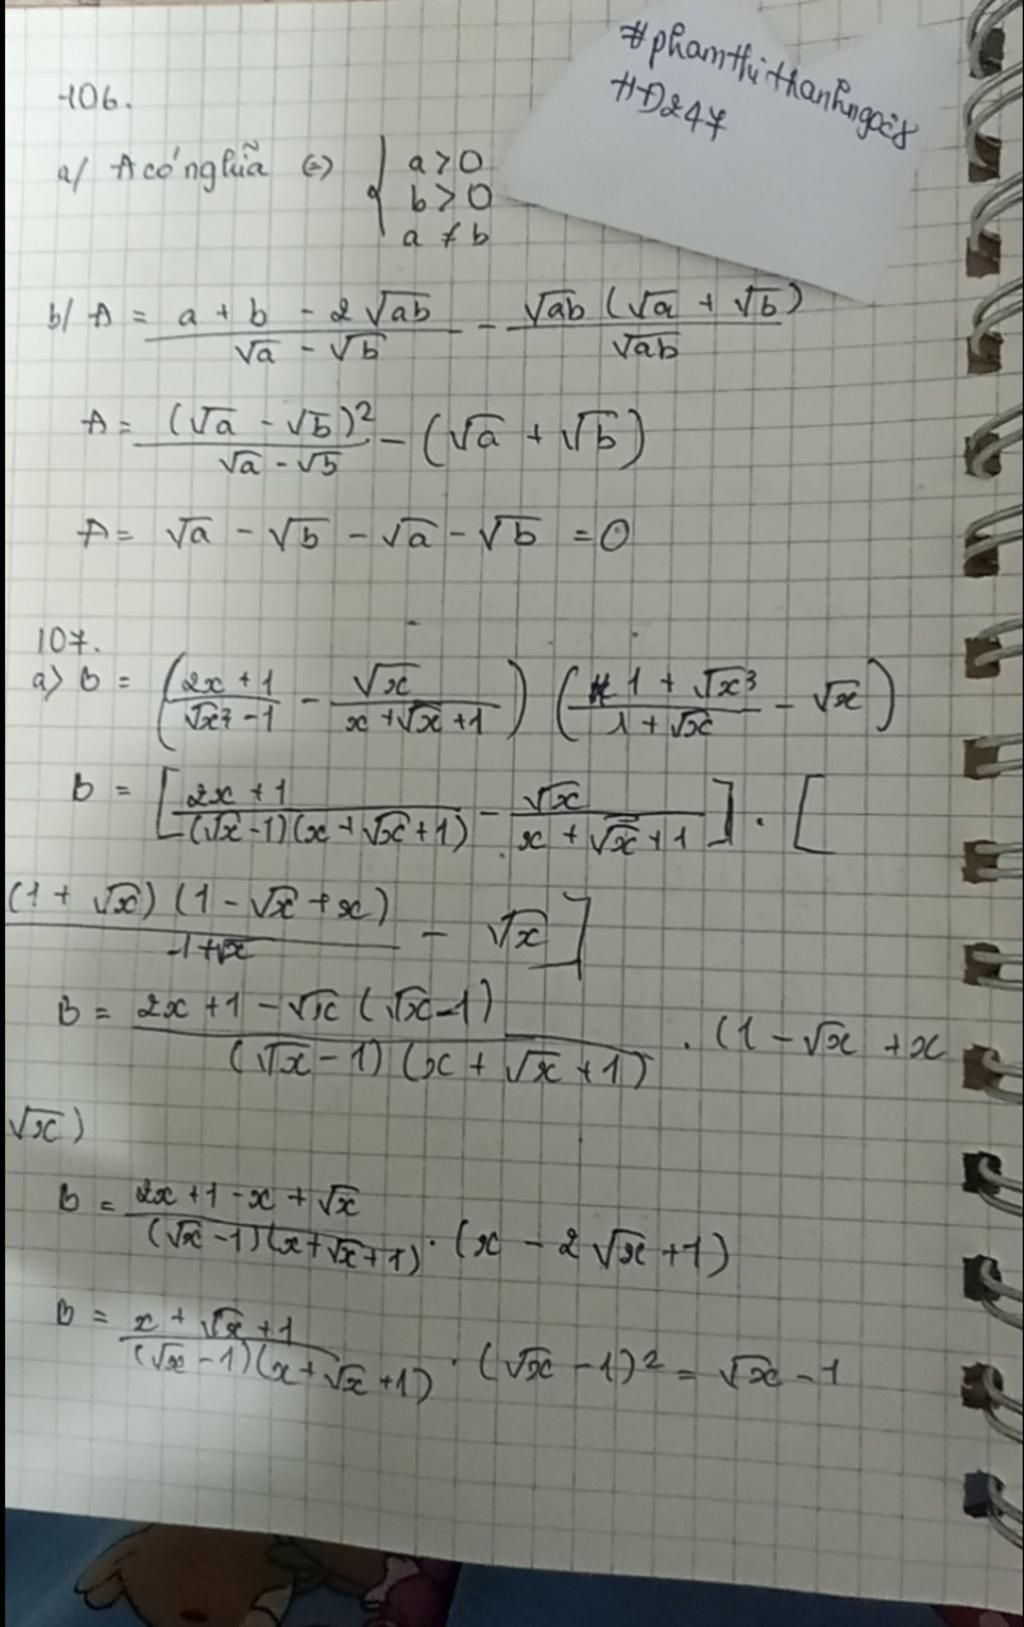 #phamthithanhngoc8
HĐ247
106.
a/ A có nghĩa (=) { a > 0
b > 0
a ≠ b
b/ A = (a + b - 2√ab)/(√a - √b) - (√ab (√a + √b))/√ab
A = (√a - √b)²/(√a - √b) - (√a + √b)
A = √a - √b - √a - √b = 0
107.
a) B = ((2x + 1)/(√x³ - 1) - √x/(x + √x + 1)) ((1 + √x³)/(1 + √x) - √x)
B = [(2x + 1)/((√x - 1)(x + √x + 1)) - √x/(x + √x + 1)] . [
((1 + √x)(1 - √x + x))/(1 + √x) - √x]
B = (2x + 1 - √x (√x - 1))/((√x - 1)(x + √x + 1)) . (1 - √x + x
√x)
B = (2x + 1 - x + √x)/((√x - 1)(x + √x + 1)) . (x - 2√x + 1)
B = (x + √x + 1)/((√x - 1)(x + √x + 1)) . (√x - 1)² = √x - 1